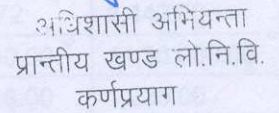 अधिशासी अभियन्ता
प्रान्तीय खण्ड लो.नि.वि.
कर्णप्रयाग